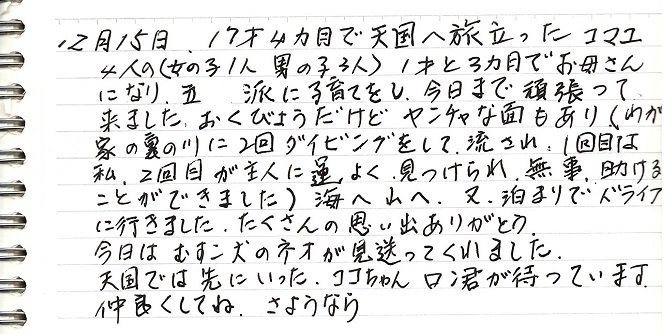 12月15日、17才4カ月で天国へ旅立ったコマユ
4人の(女の子1人 男の子3人) 1才と3カ月でお母さん
になり、 派に子育てをし、今日まで頑張って
来ました。おくびょうだけど ヤンチャな面もあり(わが
家の裏の川に2回ダイビングをして流され、1回目は
私、2回目が主人に運よく見つけられ、無事、助ける
ことができました) 海へ山へ、又、泊まりでドライブ
に行きました。たくさんの思い出ありがとう。
今日は むすこ犬のネオが見送ってくれました。
天国では先にいった、ココちゃん ロン君が待っています
仲良くしてね。さようなら